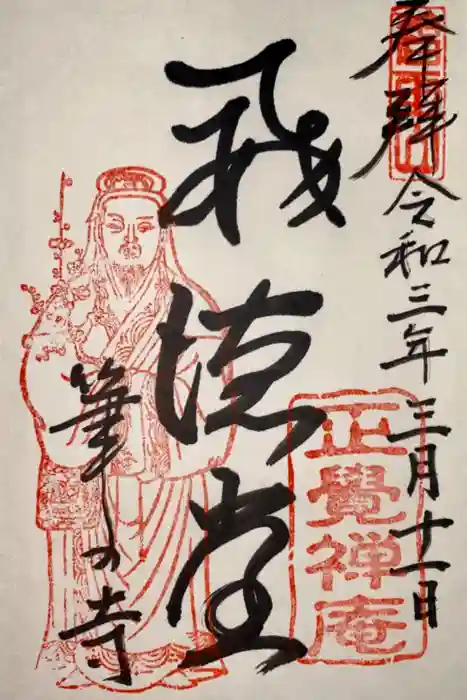 奉拝
令和三年三月十一日
正覺禅庵
徳堂
筆の寺